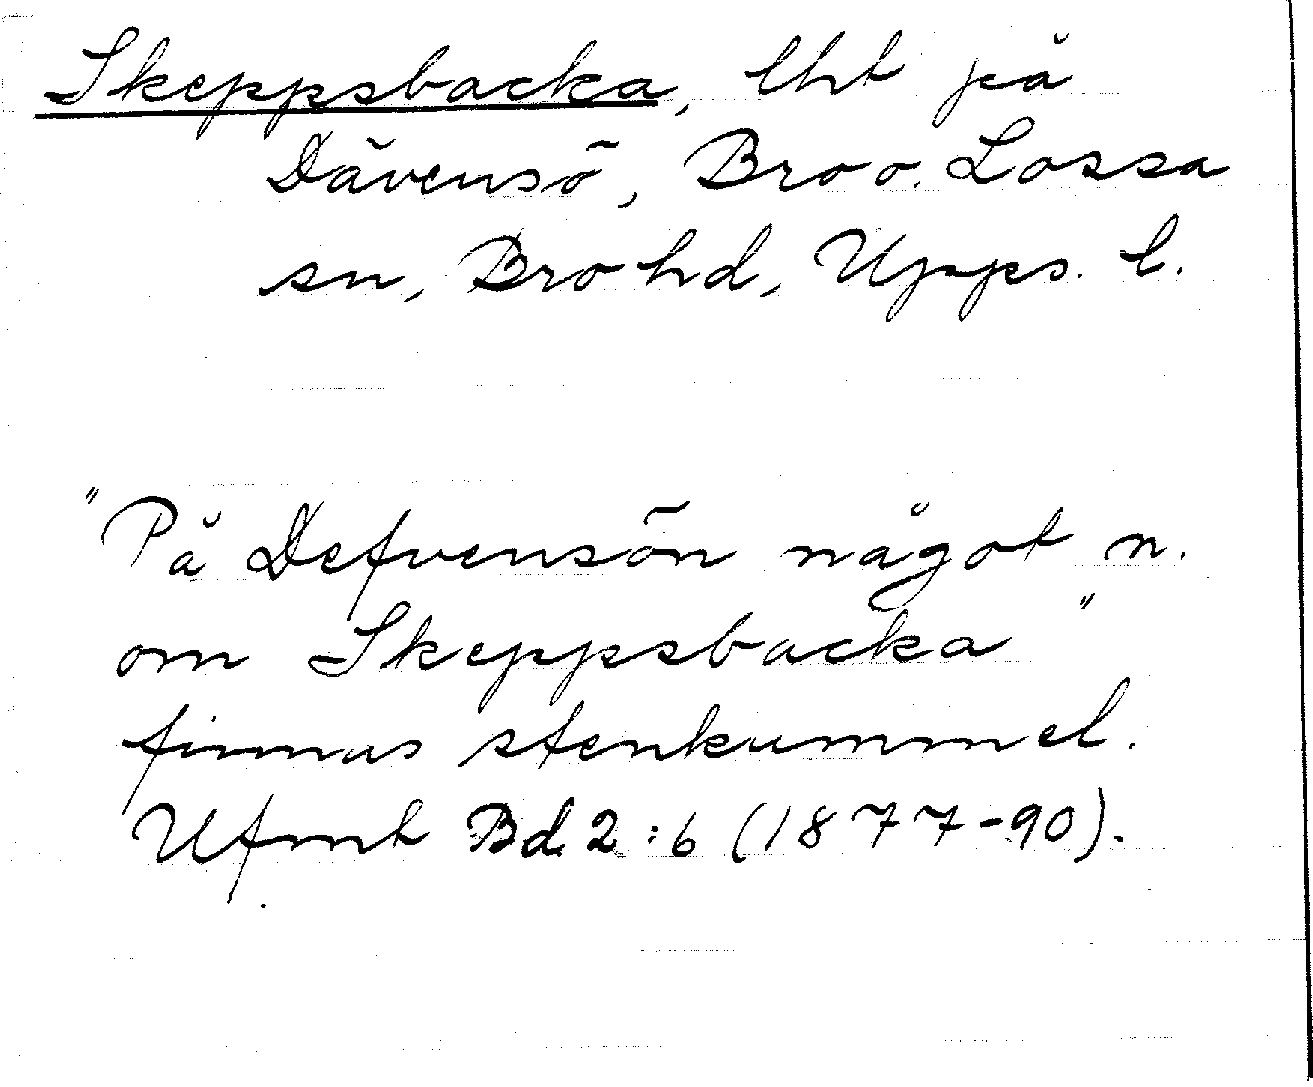 Skeppsbacka, lht på
Dävensö, Bro o. Lossa
sn, Bro hd, Upps. l.
"På Defvensön något n.
om Skeppsbacka"
finnas stenkummel.
Ufmt Bd 2:6 (1877-90).